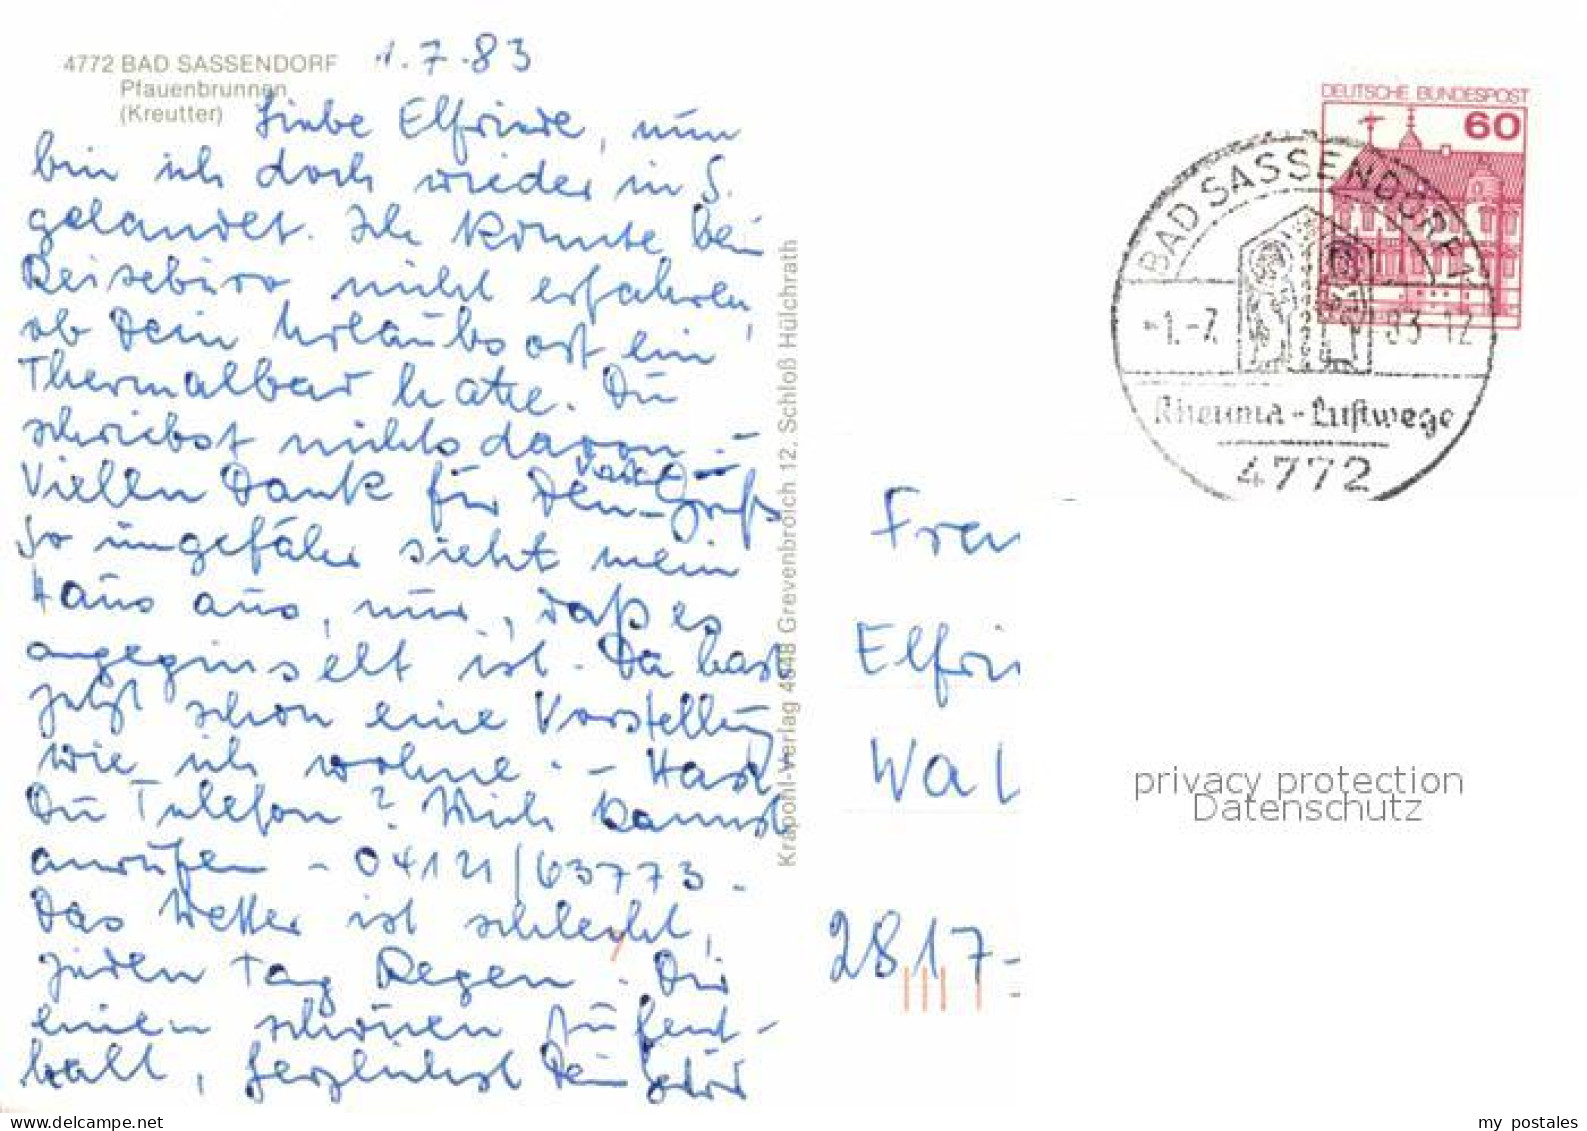 4772 BAD SASSENDORF
Pfauenbrunnen
(Kreutter)
1.7.83
Liebe Elfriede, nun
bin ich doch wieder in S.
gelandet. Ich konnte bei
Reisebüro nicht erfahren,
ob Dein Urlaubsort ein
Thermalbad hatte. Du
schriebst nichts davon. -
Vielen Dank für Den Gruß
So ungefähr sieht mein
Haus aus, nur, daß es
ist. Du hast
jetzt schon eine Vorstellung
wie ich wohne. - Hast
Du Telefon? Mich kannst
anrufen - 04121/63773 -
Das Wetter ist schlecht,
jeden Tag Regen. Dir
einen schönen Aufent-
halt, herzlichst Dein
Krapohl-Verlag 4048 Grevenbroich 12, Schloß Hülchrath
DEUTSCHE BUNDESPOST
60
BAD SASSENDORF 1
-1.-7. 83-12
Rheuma - Luftwege
4772
Frau
Elfri
Wal
2817-
privacy protection
Datenschutz
my postales